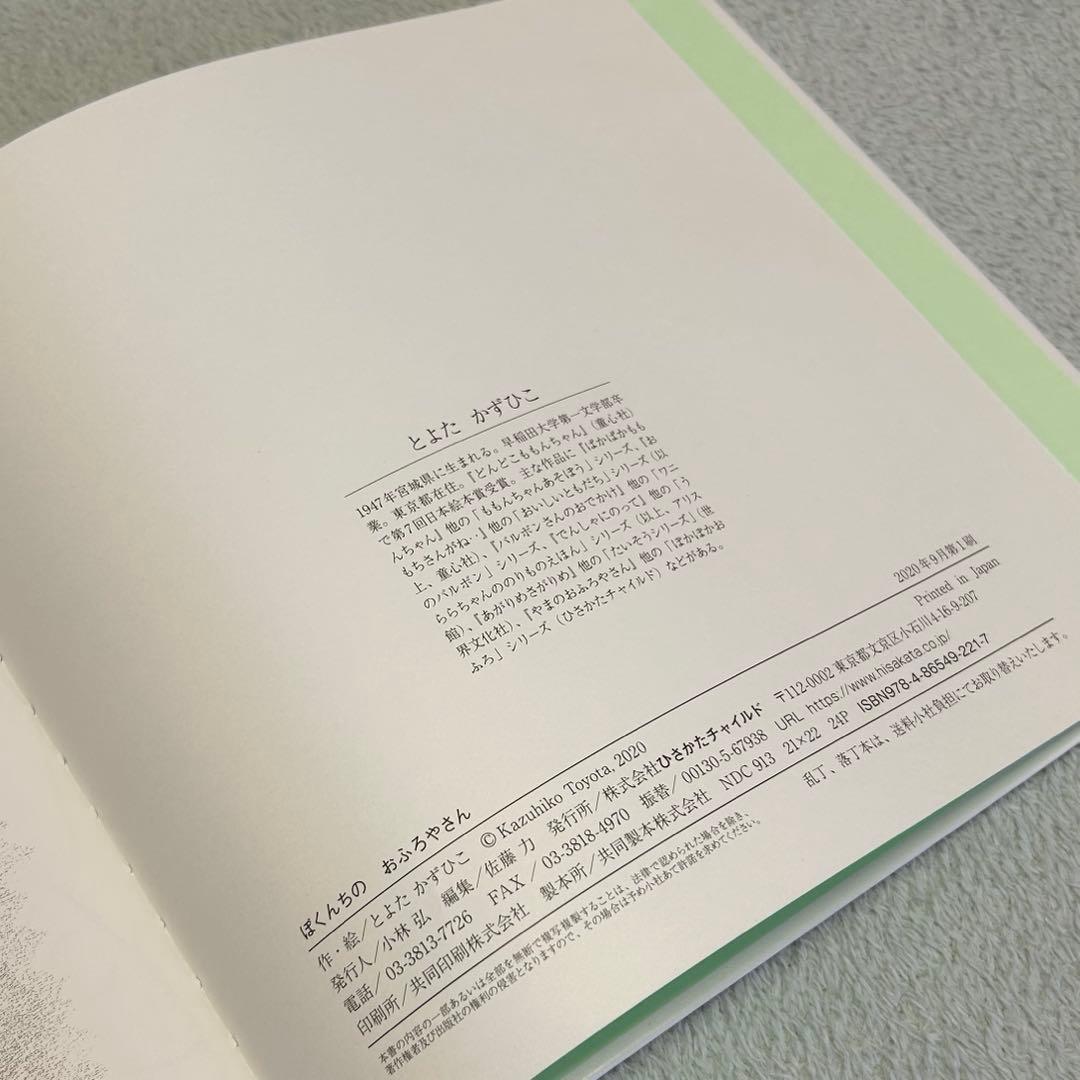 とよた かずひこ
1947年宮城県に生まれる。早稲田大学第一文学部卒
業。東京都在住。『どんどこももんちゃん』(童心社)
で第7回日本絵本賞受賞。主な作品に『ぽかぽかもも
んちゃん』他の「ももんちゃんあそぼう」シリーズ、『お
もちさんがね‥』他の「おいしいともだち」シリーズ(以
上、童心社)、『バルボンさんのおでかけ』他の「ワニ
のバルボン」シリーズ、『でんしゃにのって』他の「う
ららちゃんののりものえほん」シリーズ(以上、アリス
館)、『あがりめさがりめ』他の「たいそうシリーズ」(世
界文化社)、『やまのおふろやさん』他の「ぽかぽかお
ふろ」シリーズ(ひさかたチャイルド)などがある。
ぼくんちの おふろやさん
2020年9月第1刷
作・絵/とよた かずひこ ©Kazuhiko Toyota, 2020
Printed in Japan
発行人/小林 弘 編集/佐藤 力 発行所/株式会社ひさかたチャイルド 〒112-0002 東京都文京区小石川4-16-9-207
電話/03-3813-7726 FAX/03-3818-4970 振替/00130-5-67938 URL https://www.hisakata.co.jp/
印刷所/共同印刷株式会社 製本所/共同製本株式会社 NDC 913 21×22 24P ISBN978-4-86549-221-7
本書の内容の一部あるいは全部を無断で複写複製することは、法律で認められた場合を除き、
著作権者及び出版社の権利の侵害となりますので、その場合は予め小社あて許諾を求めてください。
乱丁、落丁本は、送料小社負担にてお取り替えいたします。